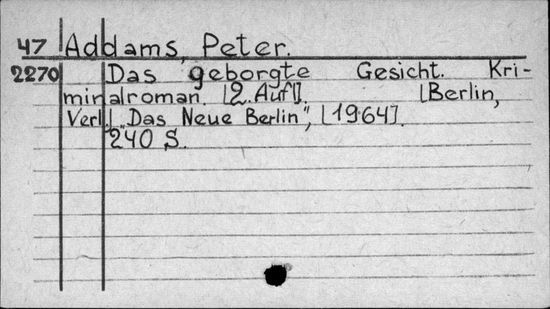 47 Addams, Peter.
2270 Das geborgte Gesicht. Kri-
minalroman. [2. Aufl]. [Berlin,
Verl. "Das Neue Berlin", [1964].
240 S.